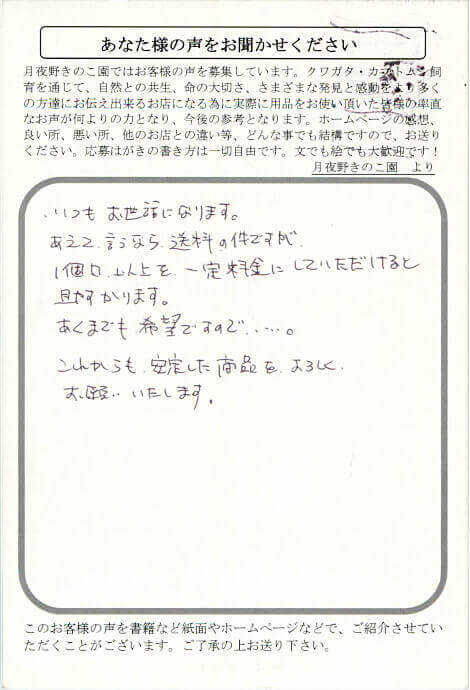 あなた様の声をお聞かせください
月夜野きのこ園ではお客様の声を募集しています。クワガタ・カブトムシ飼
育を通じて、自然との共生、命の大切さ、さまざまな発見と感動をより多く
の方達にお伝え出来るお店になる為に実際に用品をお使い頂いた皆様の率直
なお声が何よりの力となり、今後の参考となります。ホームページの感想、
良い所、悪い所、他のお店との違い等、どんな事でも結構ですので、お送り
ください。応募はがきの書き方は一切自由です。文でも絵でも大歓迎です!
月夜野きのこ園 より
いつも お世話になります。
あえて、言うなら、送料の件ですが、
1個口、以上を、一定料金にしていただけると
助かります。
あくまでも 希望ですので……。
これからも、安定した商品を、よろしく
お願いいたします。
このお客様の声を書籍など紙面やホームページなどで、ご紹介させてい
ただくことがございます。ご了承の上お送り下さい。